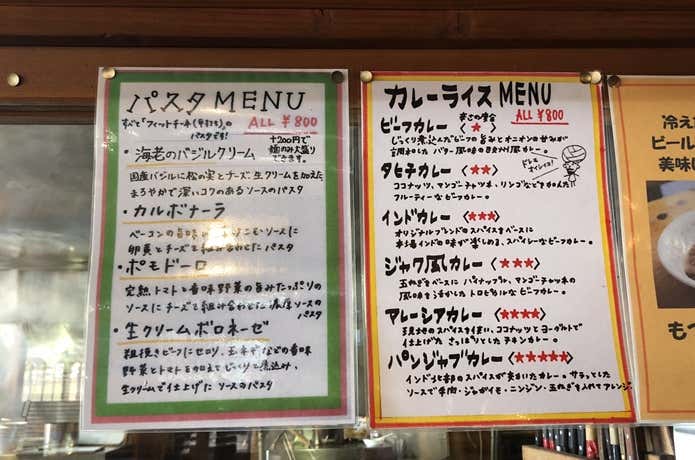 パスタ MENU
すべてフィットチーネ(平打ち)の
パスタです!
ALL ¥800
+200円で
麺の大盛り
できます。
・海老のバジルクリーム
国産バジルに松の実とチーズ、生クリームを加えた
まろやかで深いコクのあるソースのパスタ
・カルボナーラ
ベーコンの旨味
ソースに
卵黄とチーズを組み合わせた パスタ
・ポモドーロ
完熟トマトと香味野菜の旨みたっぷりの
ソースにチーズを組み合わせた濃厚ソースの
パスタ
・生クリームボロネーゼ
粗挽きビーフにセロリ、玉ネギなどの香味
野菜とトマトを加えてじっくり煮込み、
生クリームで仕上げた ソースのパスタ
カレーライス MENU
辛さの度合
ALL ¥800
ビーフカレー 〈★〉
じっくり煮込んだビーフの旨みとオニオンの甘みが
調和した バター風味の欧州風カレー。
タヒチカレー 〈★★〉
ココナッツ、マンゴーチャツネ、リンゴなどを加えた
フルーティーなビーフカレー。
ドレも
オイシイヨ!
インドカレー 〈★★★〉
オリジナルブレンドのスパイスをベースに
本場インドの味が楽しめる、スパイシーなビーフカレー。
ジャワ風カレー 〈★★★〉
玉ねぎをベースに パイナップル、マンゴーチャツネの
風味を活かした トロピカルな ビーフカレー。
アレーシアカレー 〈★★★★〉
現地のスパイスを使い、ココナッツとヨーグルトで
仕上げた さっぱりとした チキンカレー。
パンジャブカレー 〈★★★★★〉
インド北部のスパイスが効いたカレー。サラッとした
ソースで牛肉・ジャガイモ・ニンジン・玉ねぎを入れてアレンジ。
冷え
ビール
美味し
もつ